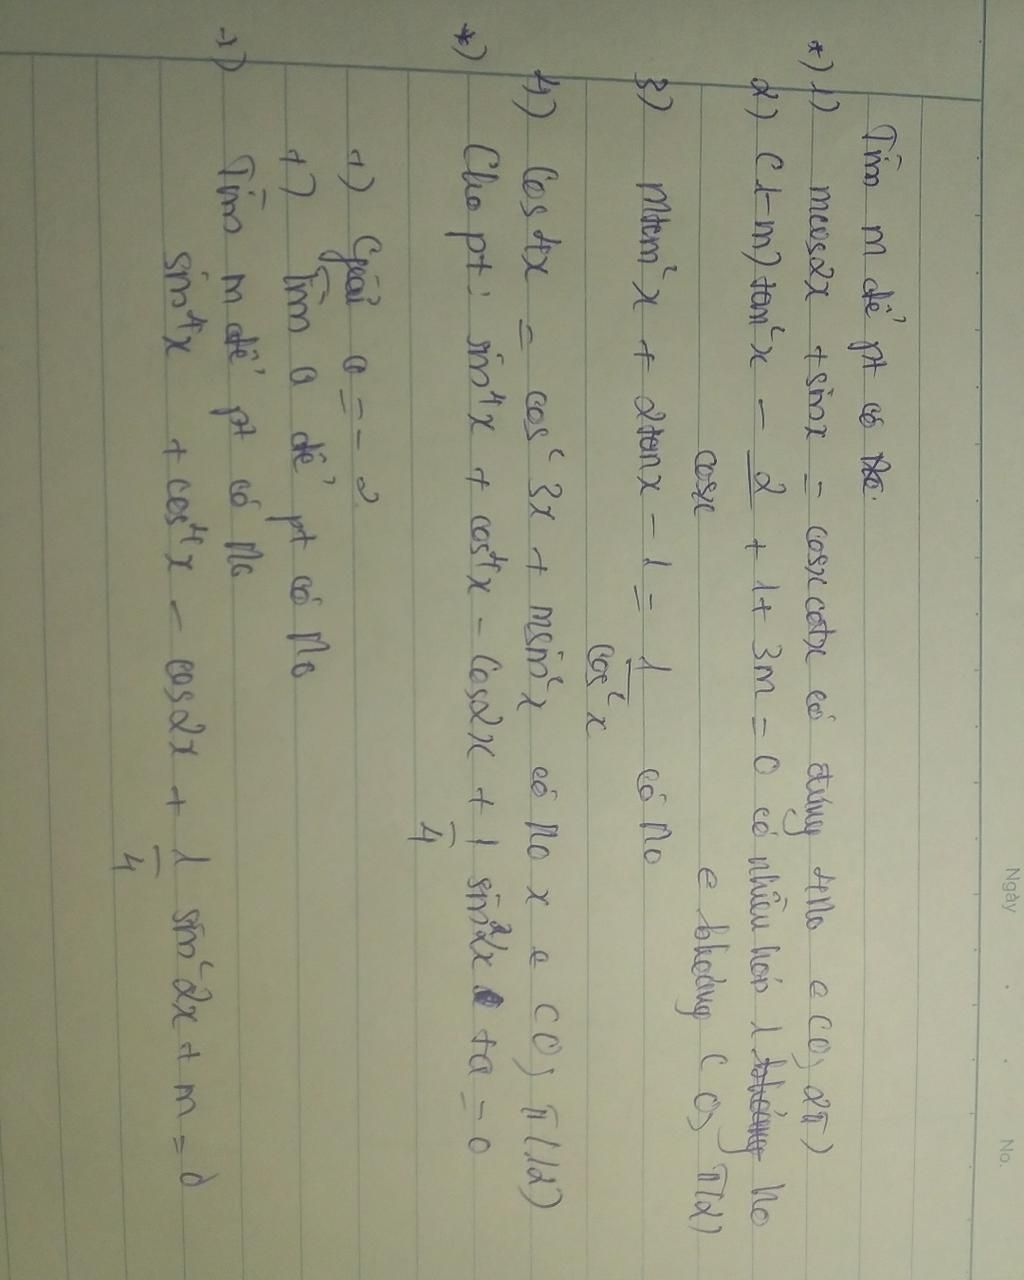 Ngày
No.
Tìm m để pt có No.
*) 1) mcos2x + sinx = cosxcotx có đúng 4No e (0; 2π)
2) (1-m) tan²x - 2/cosx + 1 + 3m = 0 có nhiều hơn 1 No e khoảng (0; π/2)
3) mtan²x + 2tanx - 1 = 1/cos²x có No
4) Cos4x = cos²3x + msin²x có No x e (0; π/12)
*) Cho pt: sin⁴x + cos⁴x - cos2x + 1/4 sin²2x + a = 0
+) Giải a = -2
+) Tìm a để pt có No
-) Tìm m để pt có No
sin⁴x + cos⁴x - cos2x + 1/4 sin²2x + m = 0